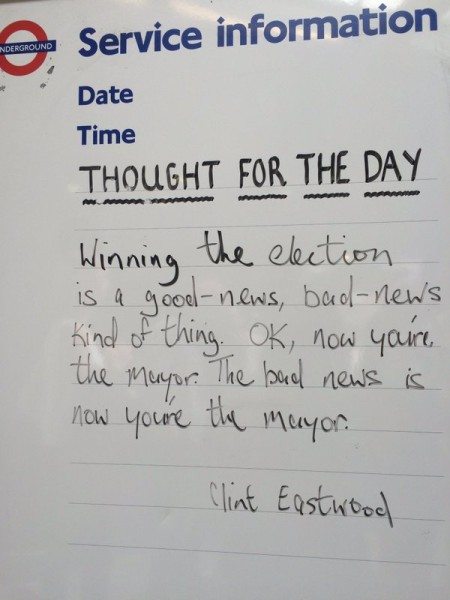 UNDERGROUND
Service information
Date
Time
THOUGHT FOR THE DAY
Winning the election
is a good-news, bad-news
kind of thing. OK, now you're
the mayor. The bad news is
now you're the mayor.
Clint Eastwood